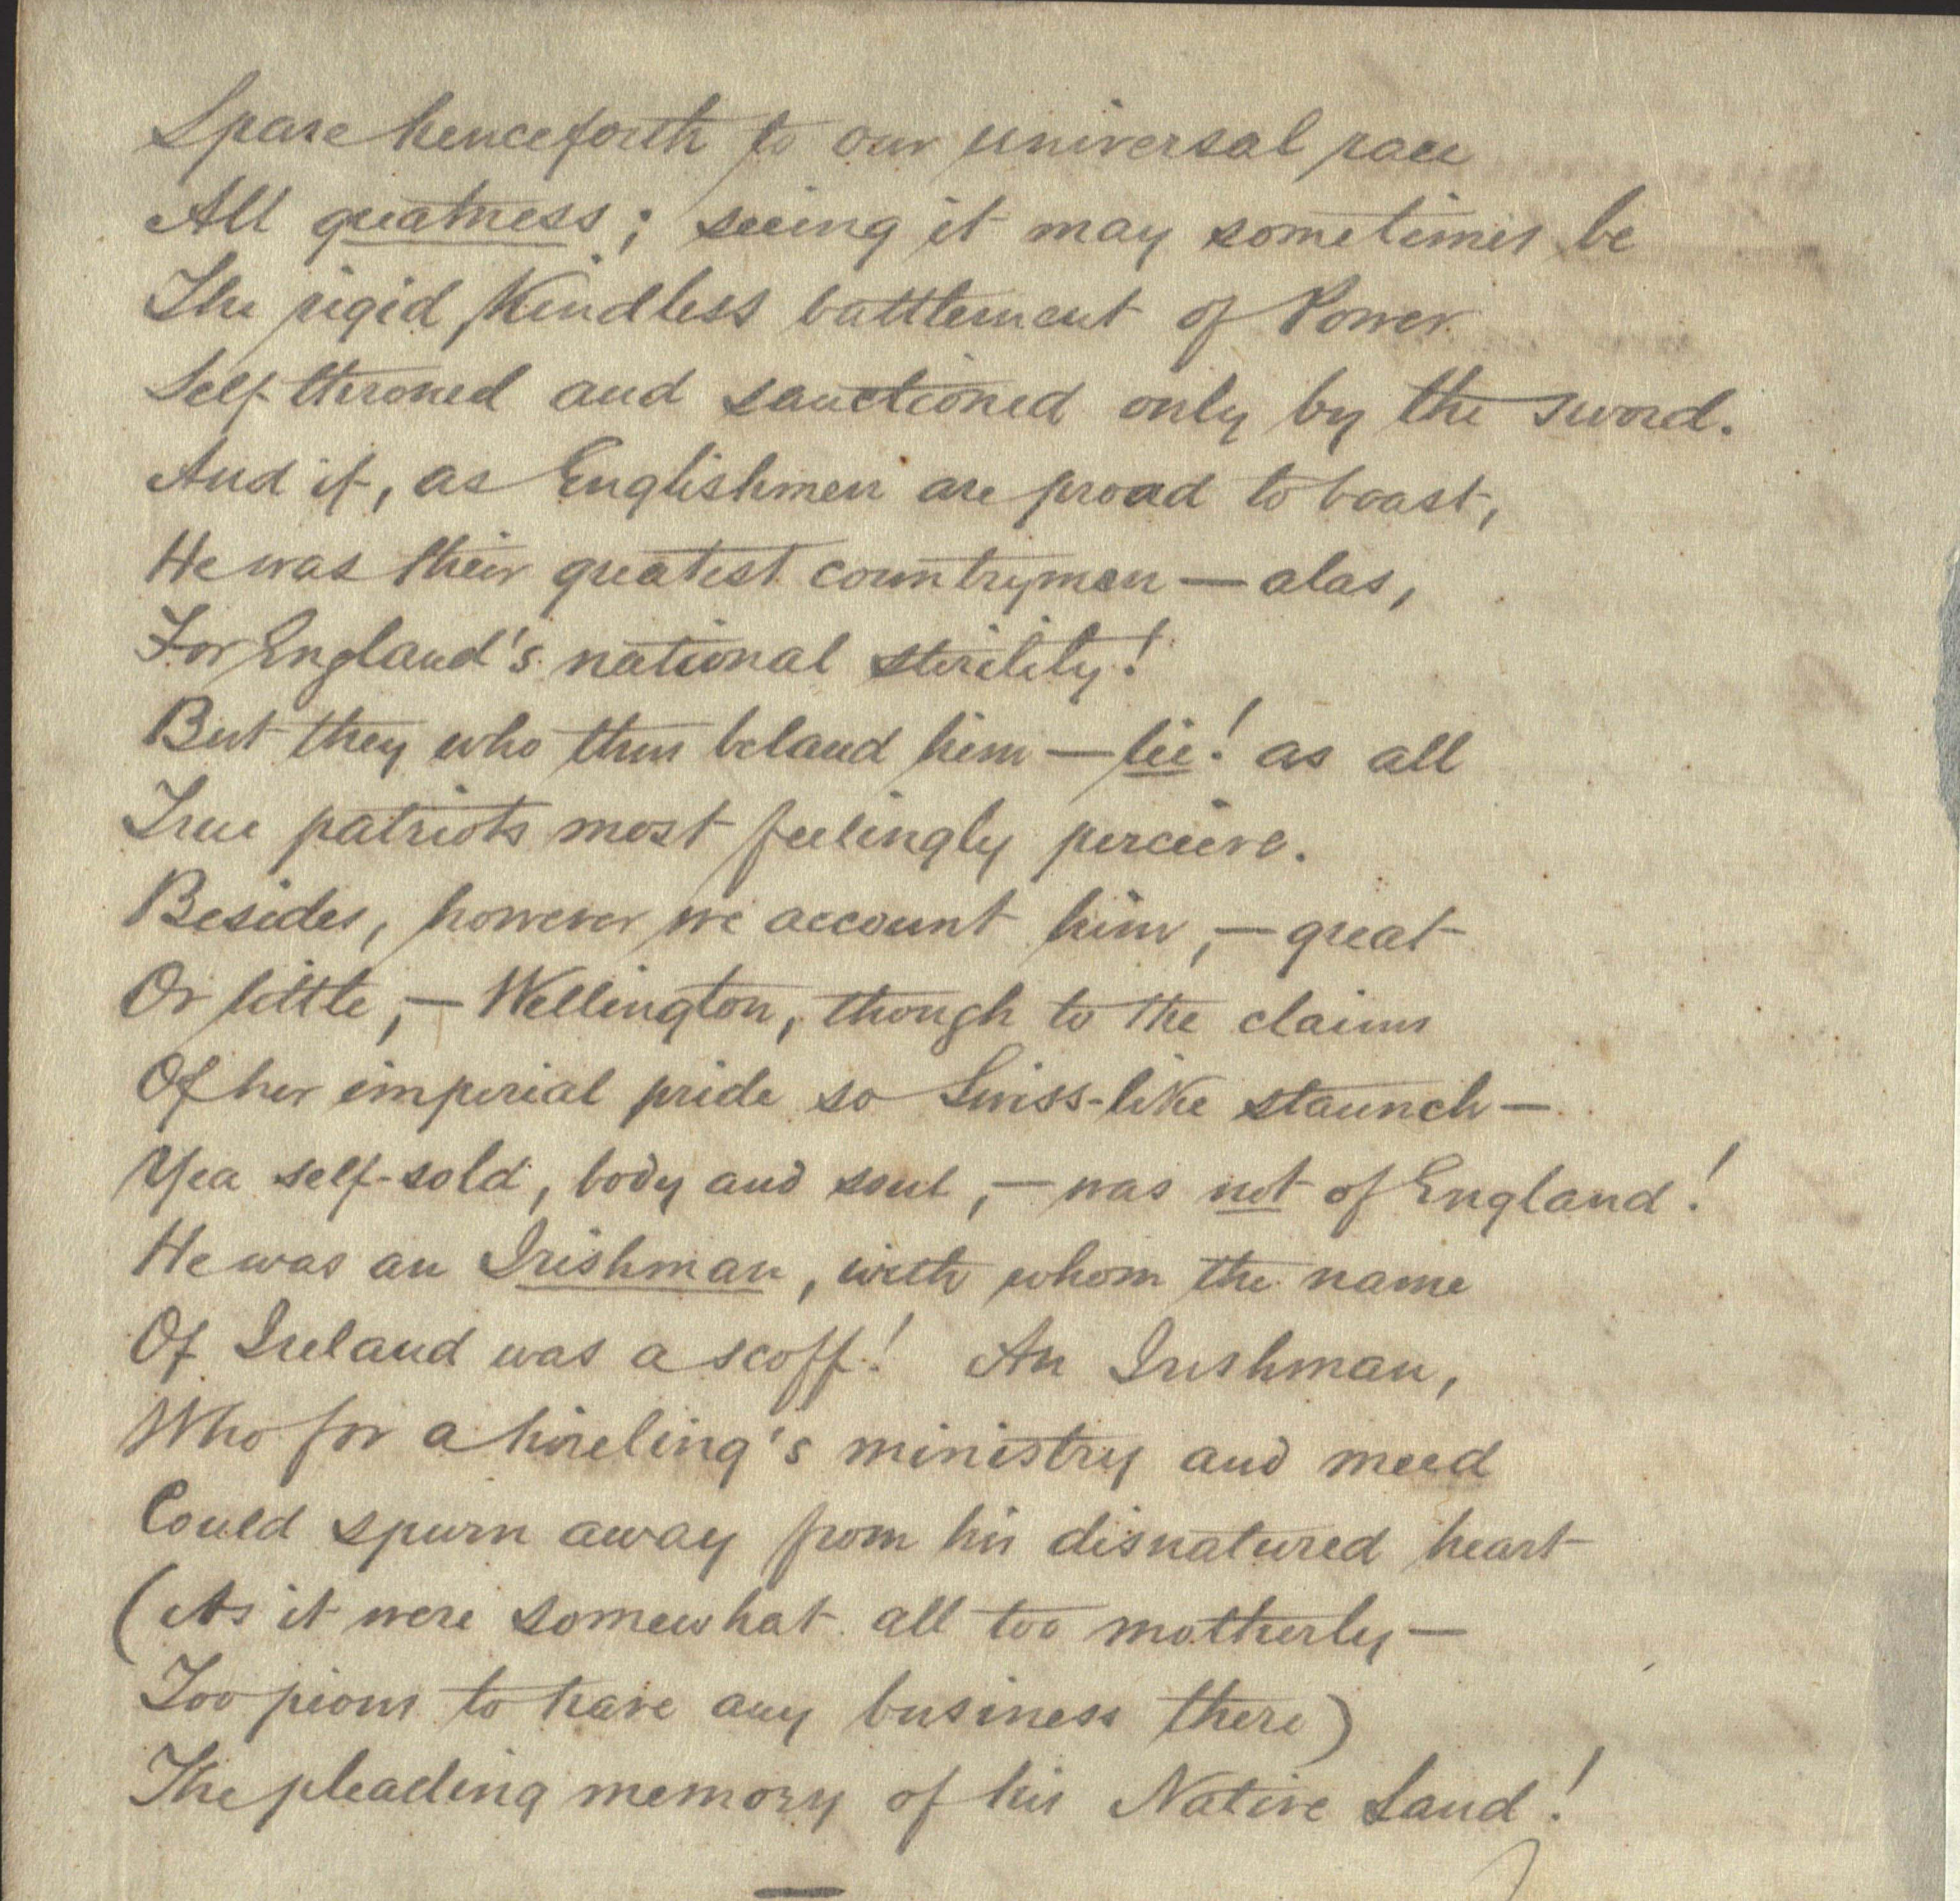 Spare henceforth to our universal race
All greatness; seeing it may sometimes be
The rigid, Kindless battlement of Power
Self throned and sanctioned only by the sword.
And if, as Englishmen are proud to boast,
He was their greatest countryman — alas,
For England's national sterility!
But they who thus belaud him — lie! as all
True patriots most feelingly perceive.
Besides, however we account him, — great
Or little, — Wellington, though to the claims
Of her imperial pride so Swiss-like staunch —
Yea self-sold, body and soul, — was not of England!
He was an Irishman, with whom the name
Of Ireland was a scoff! An Irishman,
Who for a hireling's ministry and meed
Could spurn away from his disnatured heart
(As it were somewhat all too motherly —
Too pious to have any business there)
The pleading memory of his Native Land!